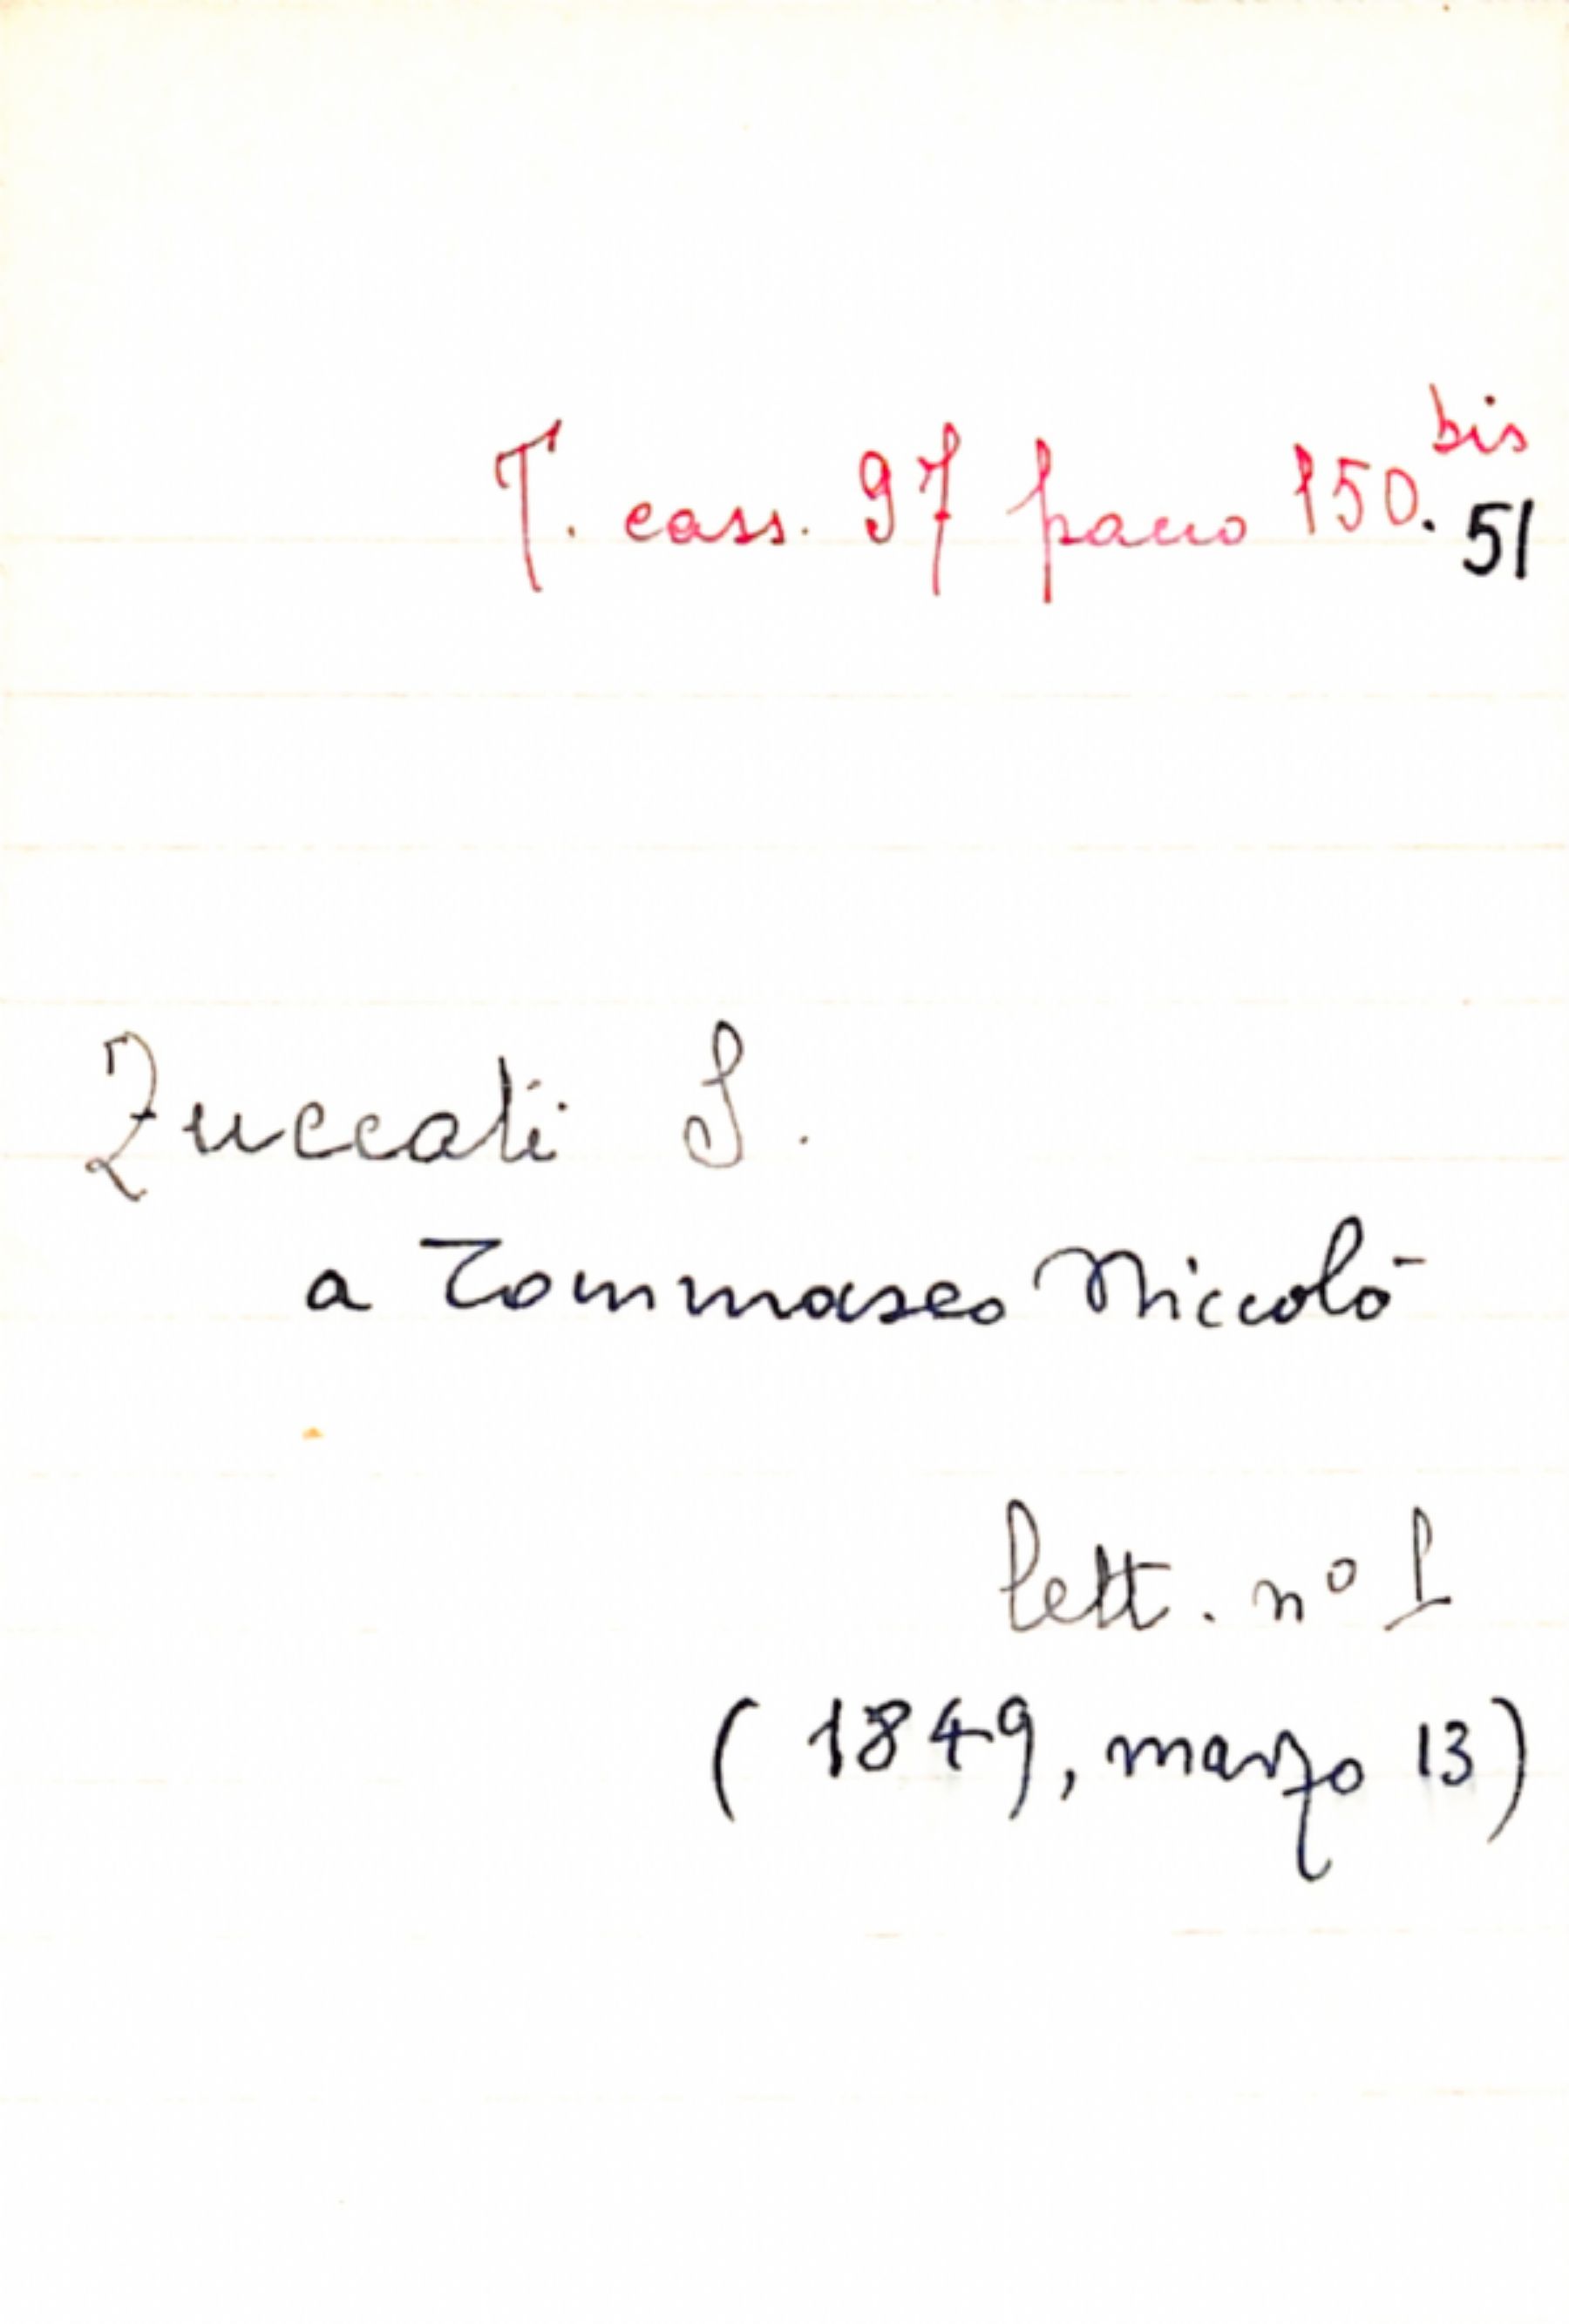 T. cass. 97 pacco 150.bis 51
Zuccati S.
a Tommaseo Niccolò
lett. nº 1
(1849, marzo 13)